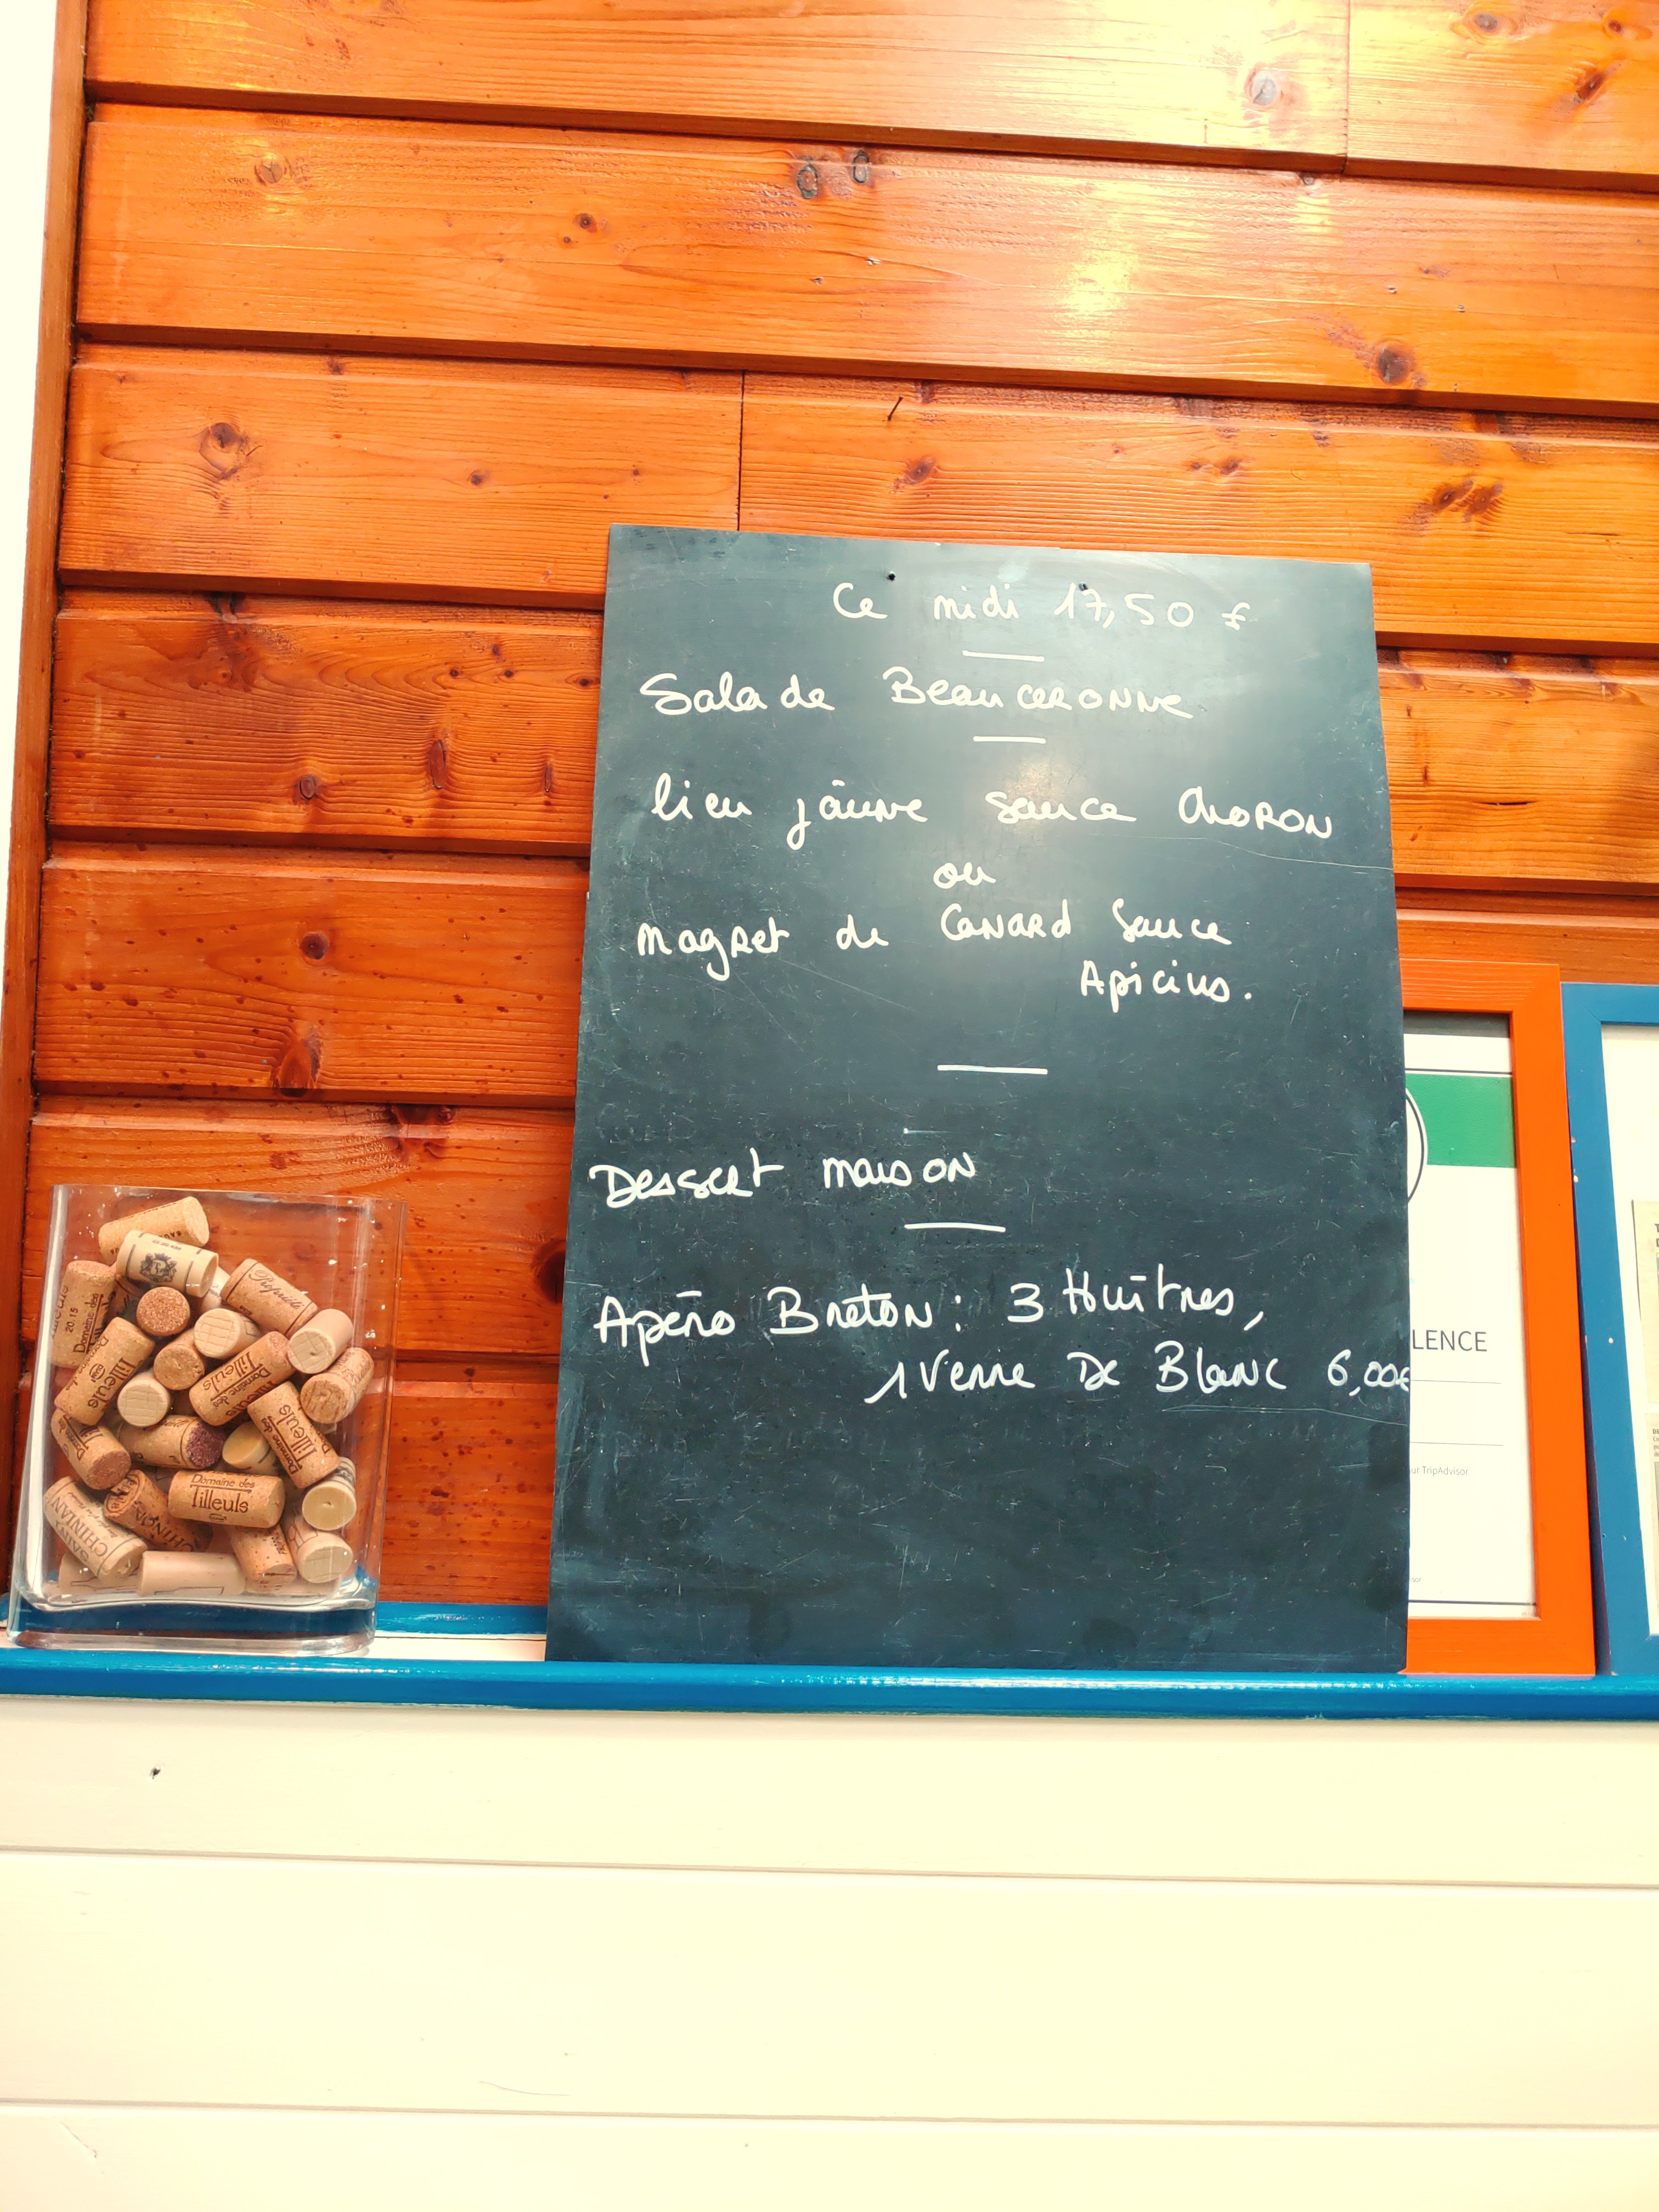 Ce midi 17,50 €
Salade Beauceronne
lieu jaune sauce CHORON
ou
Magret de Canard Sauce
Apicius.
Dessert maison
Apéro Breton : 3 Huîtres,
1 Verre De Blanc 6,00€
Domaine des
Tilleuls
Domaine des
Tilleuls
Domaine des
Tilleuls
Tilleuls
2015
Domaine des
CHINIAN
LENCE
ur TripAdvisor